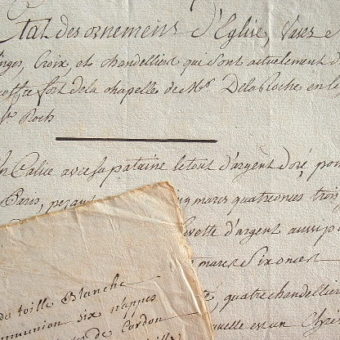 Etat des ornemens d'Eglise, Vases e
inges, Croix, et chandelliers qui sont actuelement d
coffre fort de la chapelle de Mr. De la Roche en l
St. Roch
n Calice avec sa pataine le tout d'argent doré, poin
Paris, pezant cinq marcs quatre onces trois
d'argent aussy p
marcs six onces
quatre chandellier
laquelle est un Chris
de toille Blanche
mmunion six nappes
de Cordon